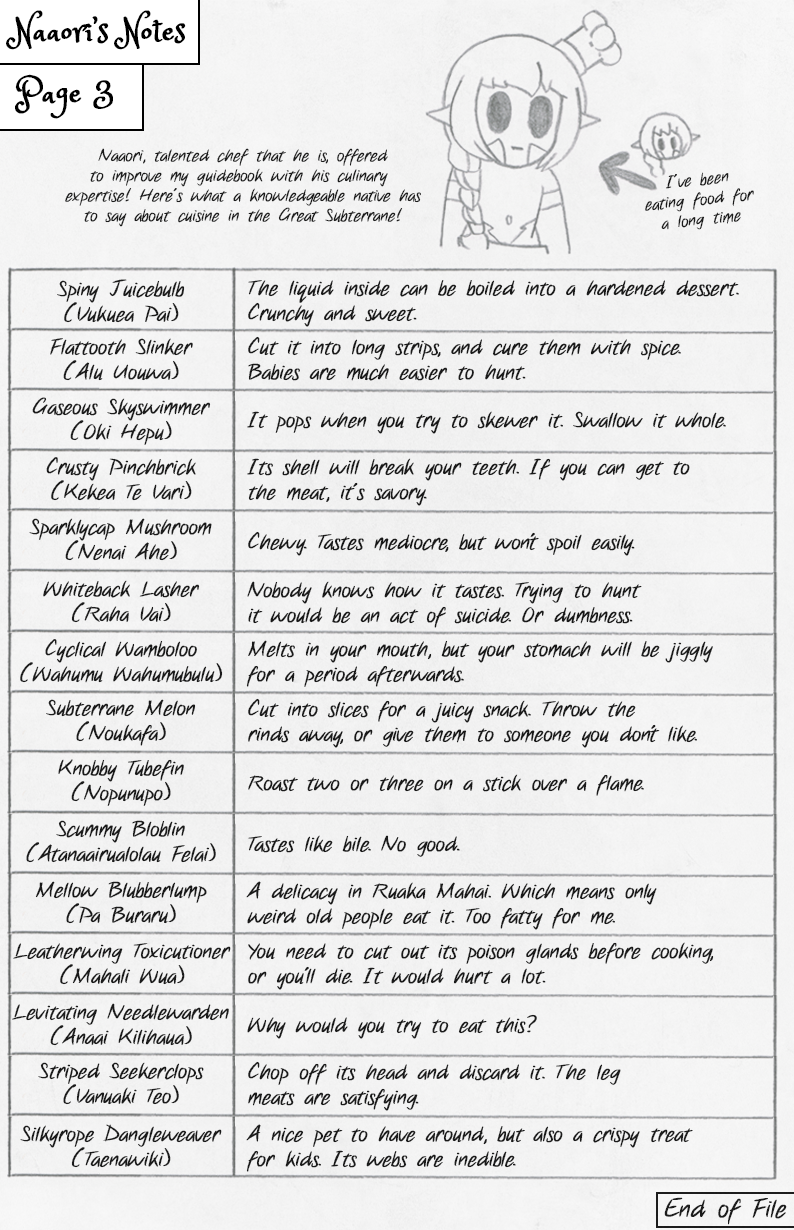 Naaori's Notes
Page 3
Naaori, talented chef that he is, offered
to improve my guidebook with his culinary
expertise! Here's what a knowledgeable native has
to say about cuisine in the Great Subterrane!
I've been
eating food for
a long time
Spiny Juicebulb
(Vukuea Pai)
The liquid inside can be boiled into a hardened dessert.
Crunchy and sweet.
Flattooth Slinker
(Alu Uouwa)
Cut it into long strips, and cure them with spice.
Babies are much easier to hunt.
Gaseous Skyswimmer
(Oki Hepu)
It pops when you try to skewer it. Swallow it whole.
Crusty Pinchbrick
(Kekea Te Vari)
Its shell will break your teeth. If you can get to
the meat, it's savory.
Sparklycap Mushroom
(Nenai Ahe)
Chewy. Tastes mediocre, but won't spoil easily.
Whiteback Lasher
(Raha Vai)
Nobody knows how it tastes. Trying to hunt
it would be an act of suicide. Or dumbness.
Cyclical Wamboloo
(Wahumu Wahumubulu)
Melts in your mouth, but your stomach will be jiggly
for a period afterwards.
Subterrane Melon
(Noukafa)
Cut into slices for a juicy snack. Throw the
rinds away, or give them to someone you don't like.
Knobby Tubefin
(Nopunupo)
Roast two or three on a stick over a flame.
Scummy Bloblin
(Atanaairualolau Felai)
Tastes like bile. No good.
Mellow Blubberlump
(Pa Buraru)
A delicacy in Ruaka Mahai. Which means only
weird old people eat it. Too fatty for me.
Leatherwing Toxicutioner
(Mahali Wua)
You need to cut out its poison glands before cooking,
or you'll die. It would hurt a lot.
Levitating Needlewarden
(Anaai Kilihaua)
Why would you try to eat this?
Striped Seekerclops
(Vanuaki Teo)
Chop off its head and discard it. The leg
meats are satisfying.
Silkyrope Dangleweaver
(Taenawiki)
A nice pet to have around, but also a crispy treat
for kids. Its webs are inedible.
End of File